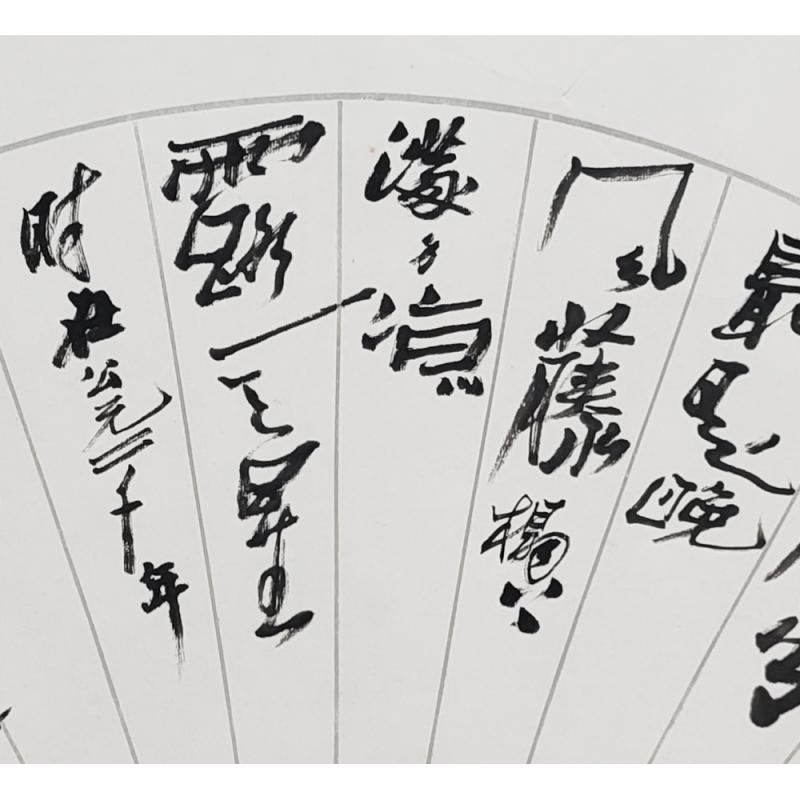 最是晚
风藤榻上
满身凉
露一天星
时在公元二千年